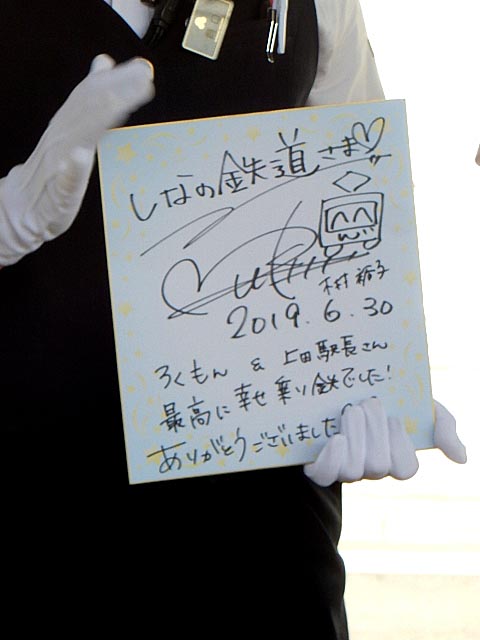 しなの鉄道さま♡
村裕子
2019.6.30
ろくもん & 上田駅長さん
最高に幸せ乗り鉄でした!
ありがとうございました